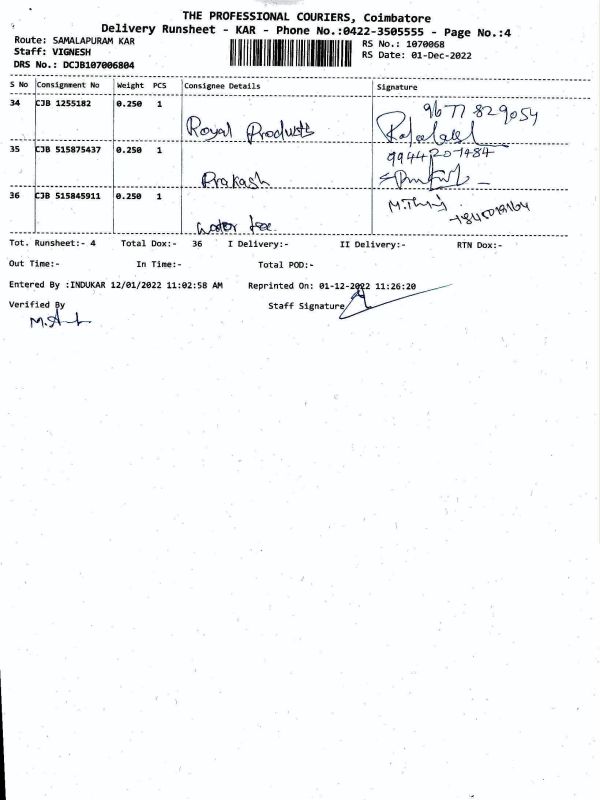 THE PROFESSIONAL COURIERS, Coimbatore
Delivery Runsheet - KAR - Phone No.:0422-3505555 - Page No.:4
Route: SAMALAPURAM KAR
RS No.: 1070068
Staff: VIGNESH
RS Date: 01-Dec-2022
DRS No.: DCJB107006804
S No Consignment No Weight PCS Consignee Details Signature
34 CJB 1255182 0.250 1 9677829054
Royal Products
35 CJB 515875437 0.250 1 9944207484
Prakash
36 CJB 515845911 0.250 1
Tot. Runsheet:- 4 Total Dox:- 36 I Delivery:- II Delivery:- RTN Dox:-
Out Time:- In Time:- Total POD:-
Entered By :INDUKAR 12/01/2022 11:02:58 AM Reprinted On: 01-12-2022 11:26:20
Verified By Staff Signature